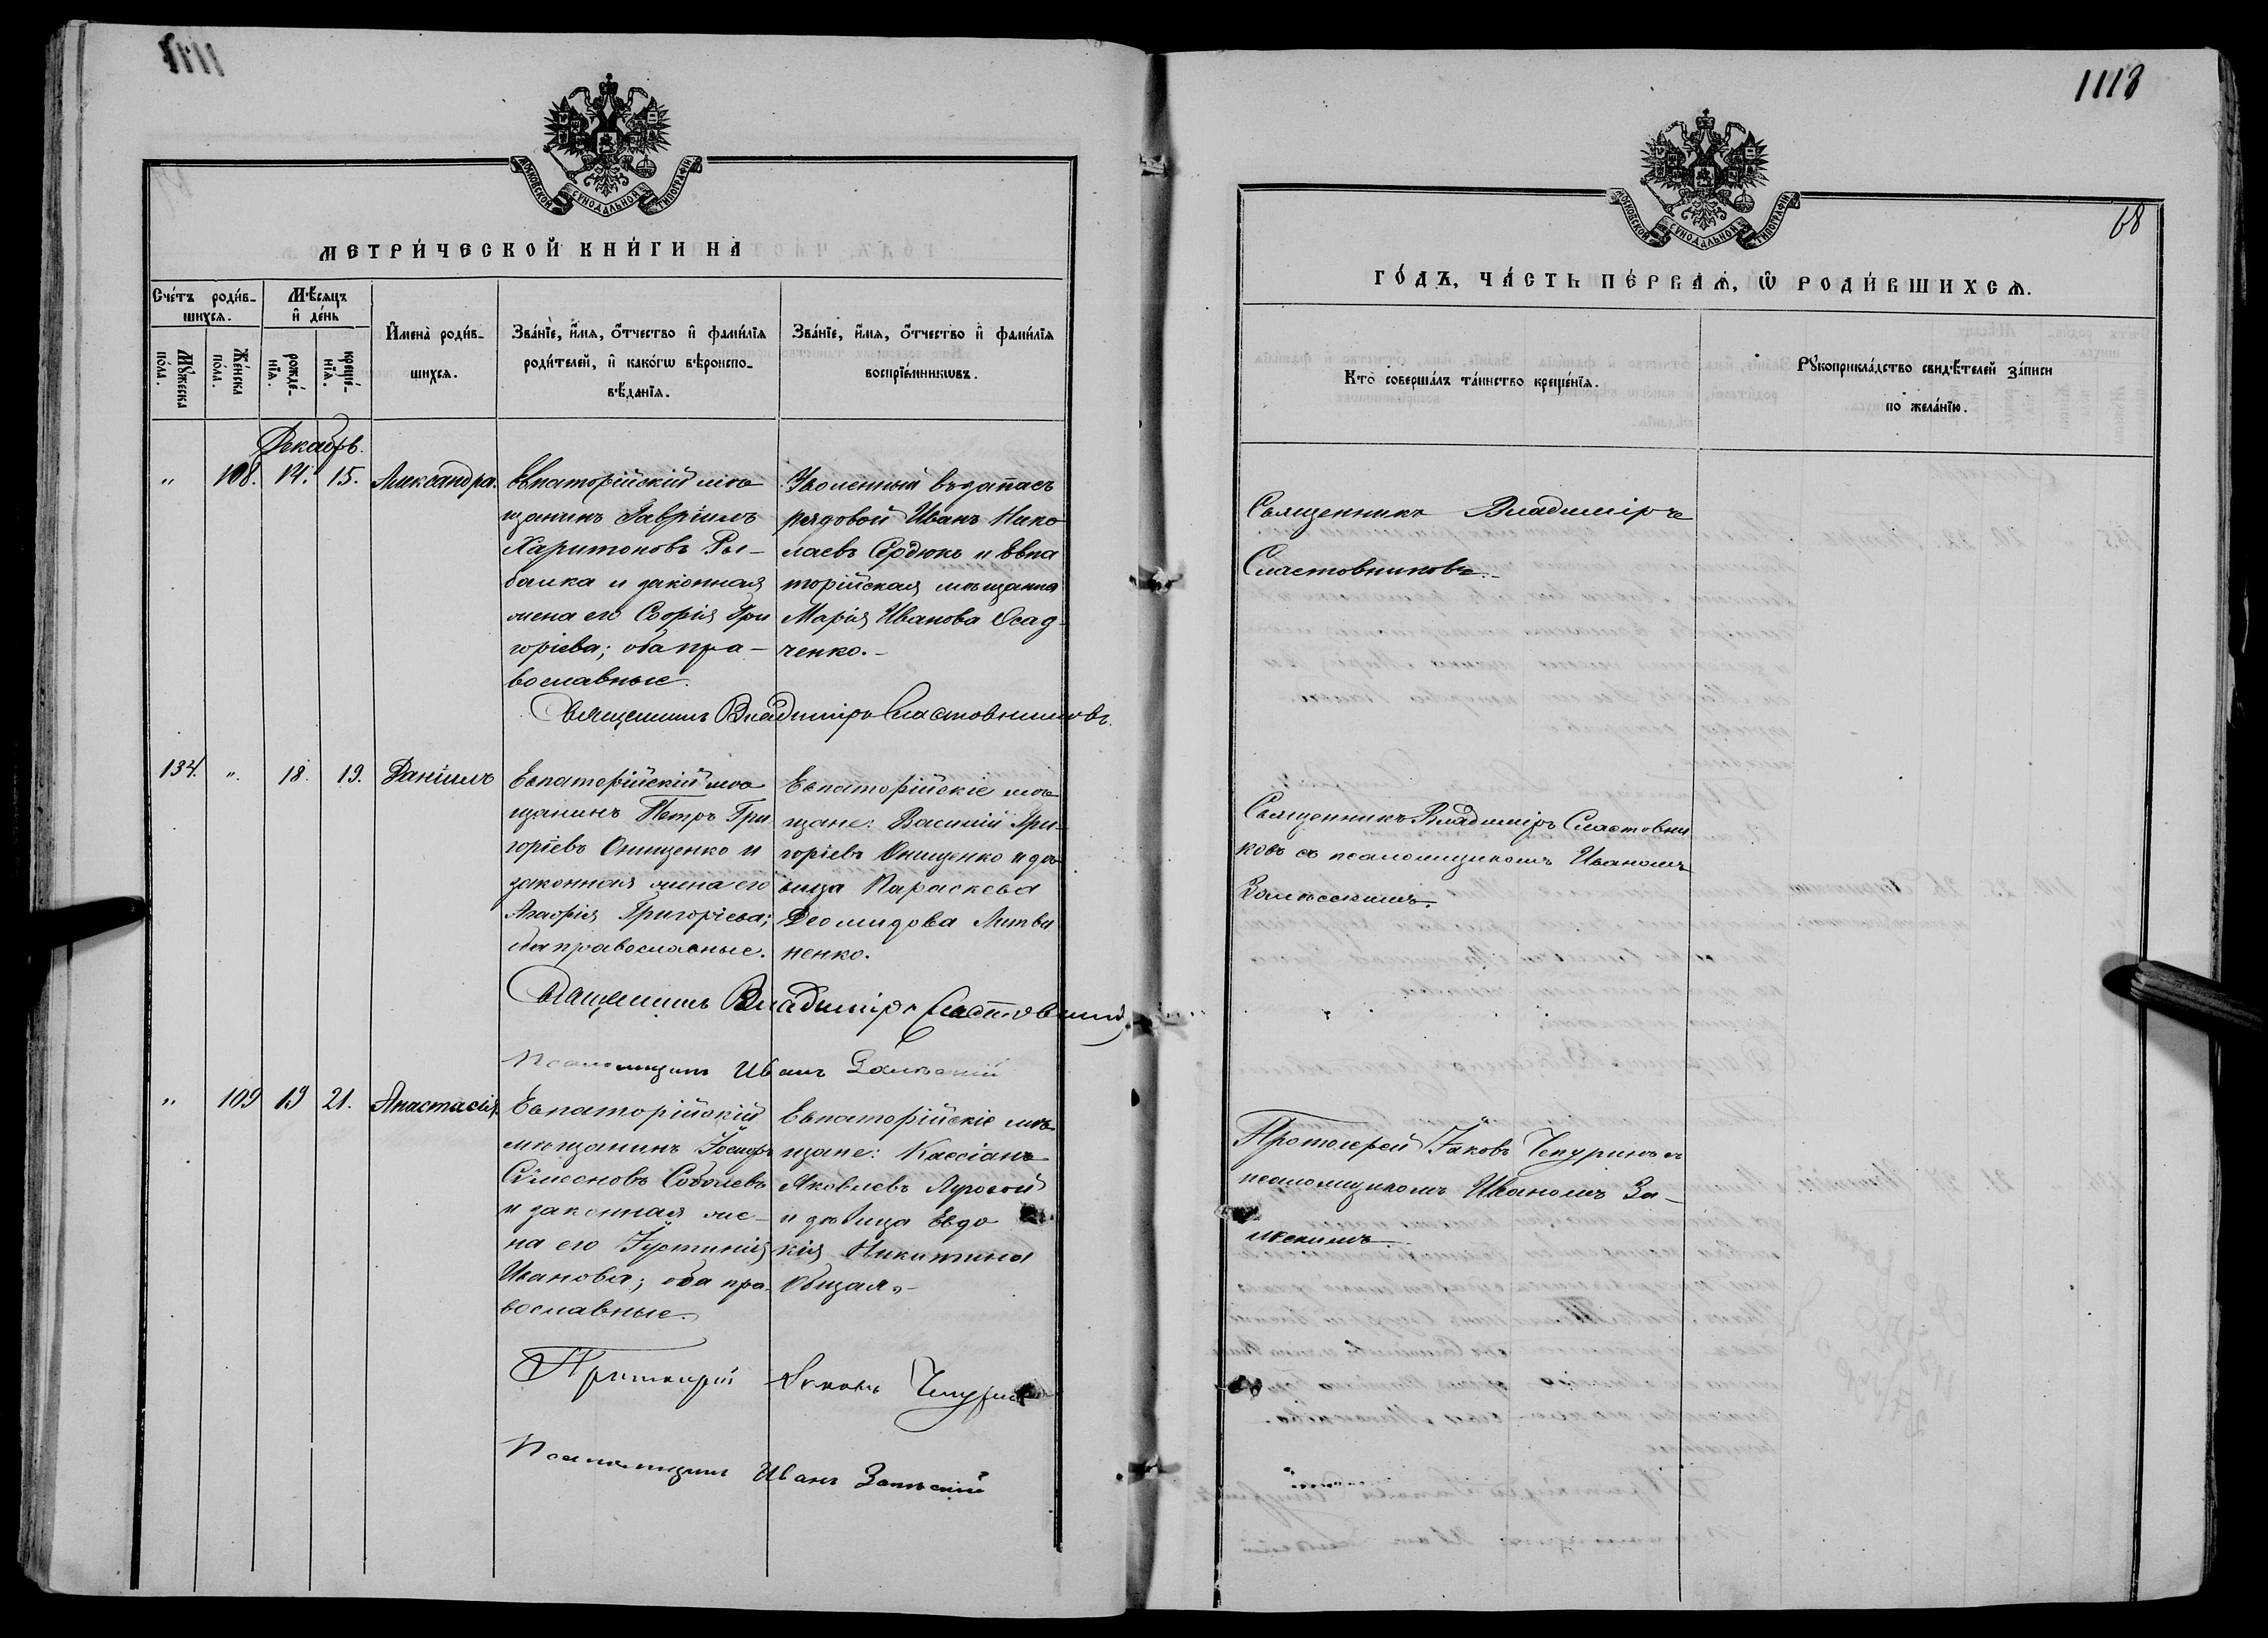 1118
68
МОСКОВСКОЙ СѴНОДАЛЬНОЙ ТИПОГРАФІИ
МЕТРИ́ЧЕСКОЙ КНИ́ГИ НА
Сче́тъ роди́в-
шихсѧ.
Мѣ́сѧцъ
и҆ де́нь
Мꙋ́жеска
по́ла.
Же́нска
по́ла.
рожде́-
нїѧ.
креще́-
нїѧ.
И҆мена̀ роди́в-
шихсѧ.
Зва́нїе, и҆́мѧ, ѻ҆́тчество и҆ фами́лїѧ
роди́телей, и҆ како́гѡ вѣроиспо-
вѣ́данїѧ.
Зва́нїе, и҆́мѧ, ѻ҆́тчество и҆ фами́лїѧ
воспрїе́мникѡвъ.
Декабрь.
" 108. 14. 15. Александра.
Евпаторійскій мѣ
щанинъ Гавріилъ
Харитоновъ Ры-
балка и законная
жена его Софія Гри
горіева; оба пра-
вославные.
Уволенный въ запасъ
рядовой Иванъ Нико
лаевъ Сердюкъ и Евпа
торійская мѣщанка
Марія Иванова Осад-
ченко.-
Священникъ Владиміръ Сластовниковъ.
134. ". 18. 19. Даніилъ
Евпаторійскій мѣ
щанинъ Петръ Гри
горіевъ Онищенко и
законная жена его
Агафія Григоріева;
оба православные.
Евпаторійскіе мѣ-
щане: Василій Гри-
горіевъ Онищенко и дѣ-
вица Параскева
Деомидова Литви
ненко.
Священникъ Владиміръ Сластовник
Псаломщикъ Иванъ
" 109 19 21. Анастасія.
Евпаторійскій
мѣщанинъ Іосифъ
Сѵмеоновъ Соболевъ
и законная же-
на его Іустинія
Иванова; оба пра-
вославные.
Евпаторійскіе мѣ-
щане: Кассіанъ
Яковлевъ Луговой
и дѣвица Евдо
кія Никитина
Кбицая.-
Протоіерей Іаковъ Чепуринъ
Псаломщикъ Иванъ
МОСКОВСКОЙ СѴНОДАЛЬНОЙ ТИПОГРАФІИ
ГО́ДЪ, ЧА́СТЬ ПЕ́РВАѦ, Ѡ҆ РОДИ́ВШИХСѦ.
Кто̀ соверша́лъ та́инство креще́нїѧ.
Рꙋкоприкла́дство свидѣ́телей за́писи
по жела́нїю.
Священникъ Владиміръ
Сластовниковъ.-
Священникъ Владиміръ Сластовни
ковъ съ псаломщикомъ Иваномъ
Протоіерей Іаковъ Чепуринъ съ
псаломщикомъ Иваномъ За-